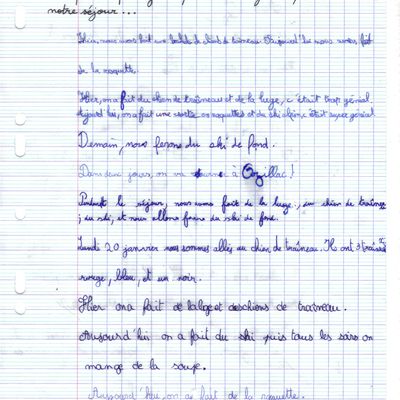 notre séjour...
Hier, nous avons fait une balade de chiens de traineau. Aujourd'hui nous avons fait
de la raquette.
Hier, on a fait du chien de traîneau et de la luge, c'était trop génial.
Aujourd'hui, on a fait une sortie en raquettes et du ski alpin, c'était super génial.
Demain, nous ferons du ski de fond.
Dans deux jours, on va à
Pendant le séjour, nous avons fait de la luge, du chien de traîneau
, du ski, et nous allons faire du ski de fond.
Lundi 20 janvier nous sommes allés au chien de traîneau. Il ont 3 traîneaux
rouge, bleu, et un noir.
Hier on a fait de la luge et des chiens de traineau.
Aujourd'hui on a fait du ski puis tous les soirs on
mange de la soupe.
Aujourd'hui, on a fait de la raquette.